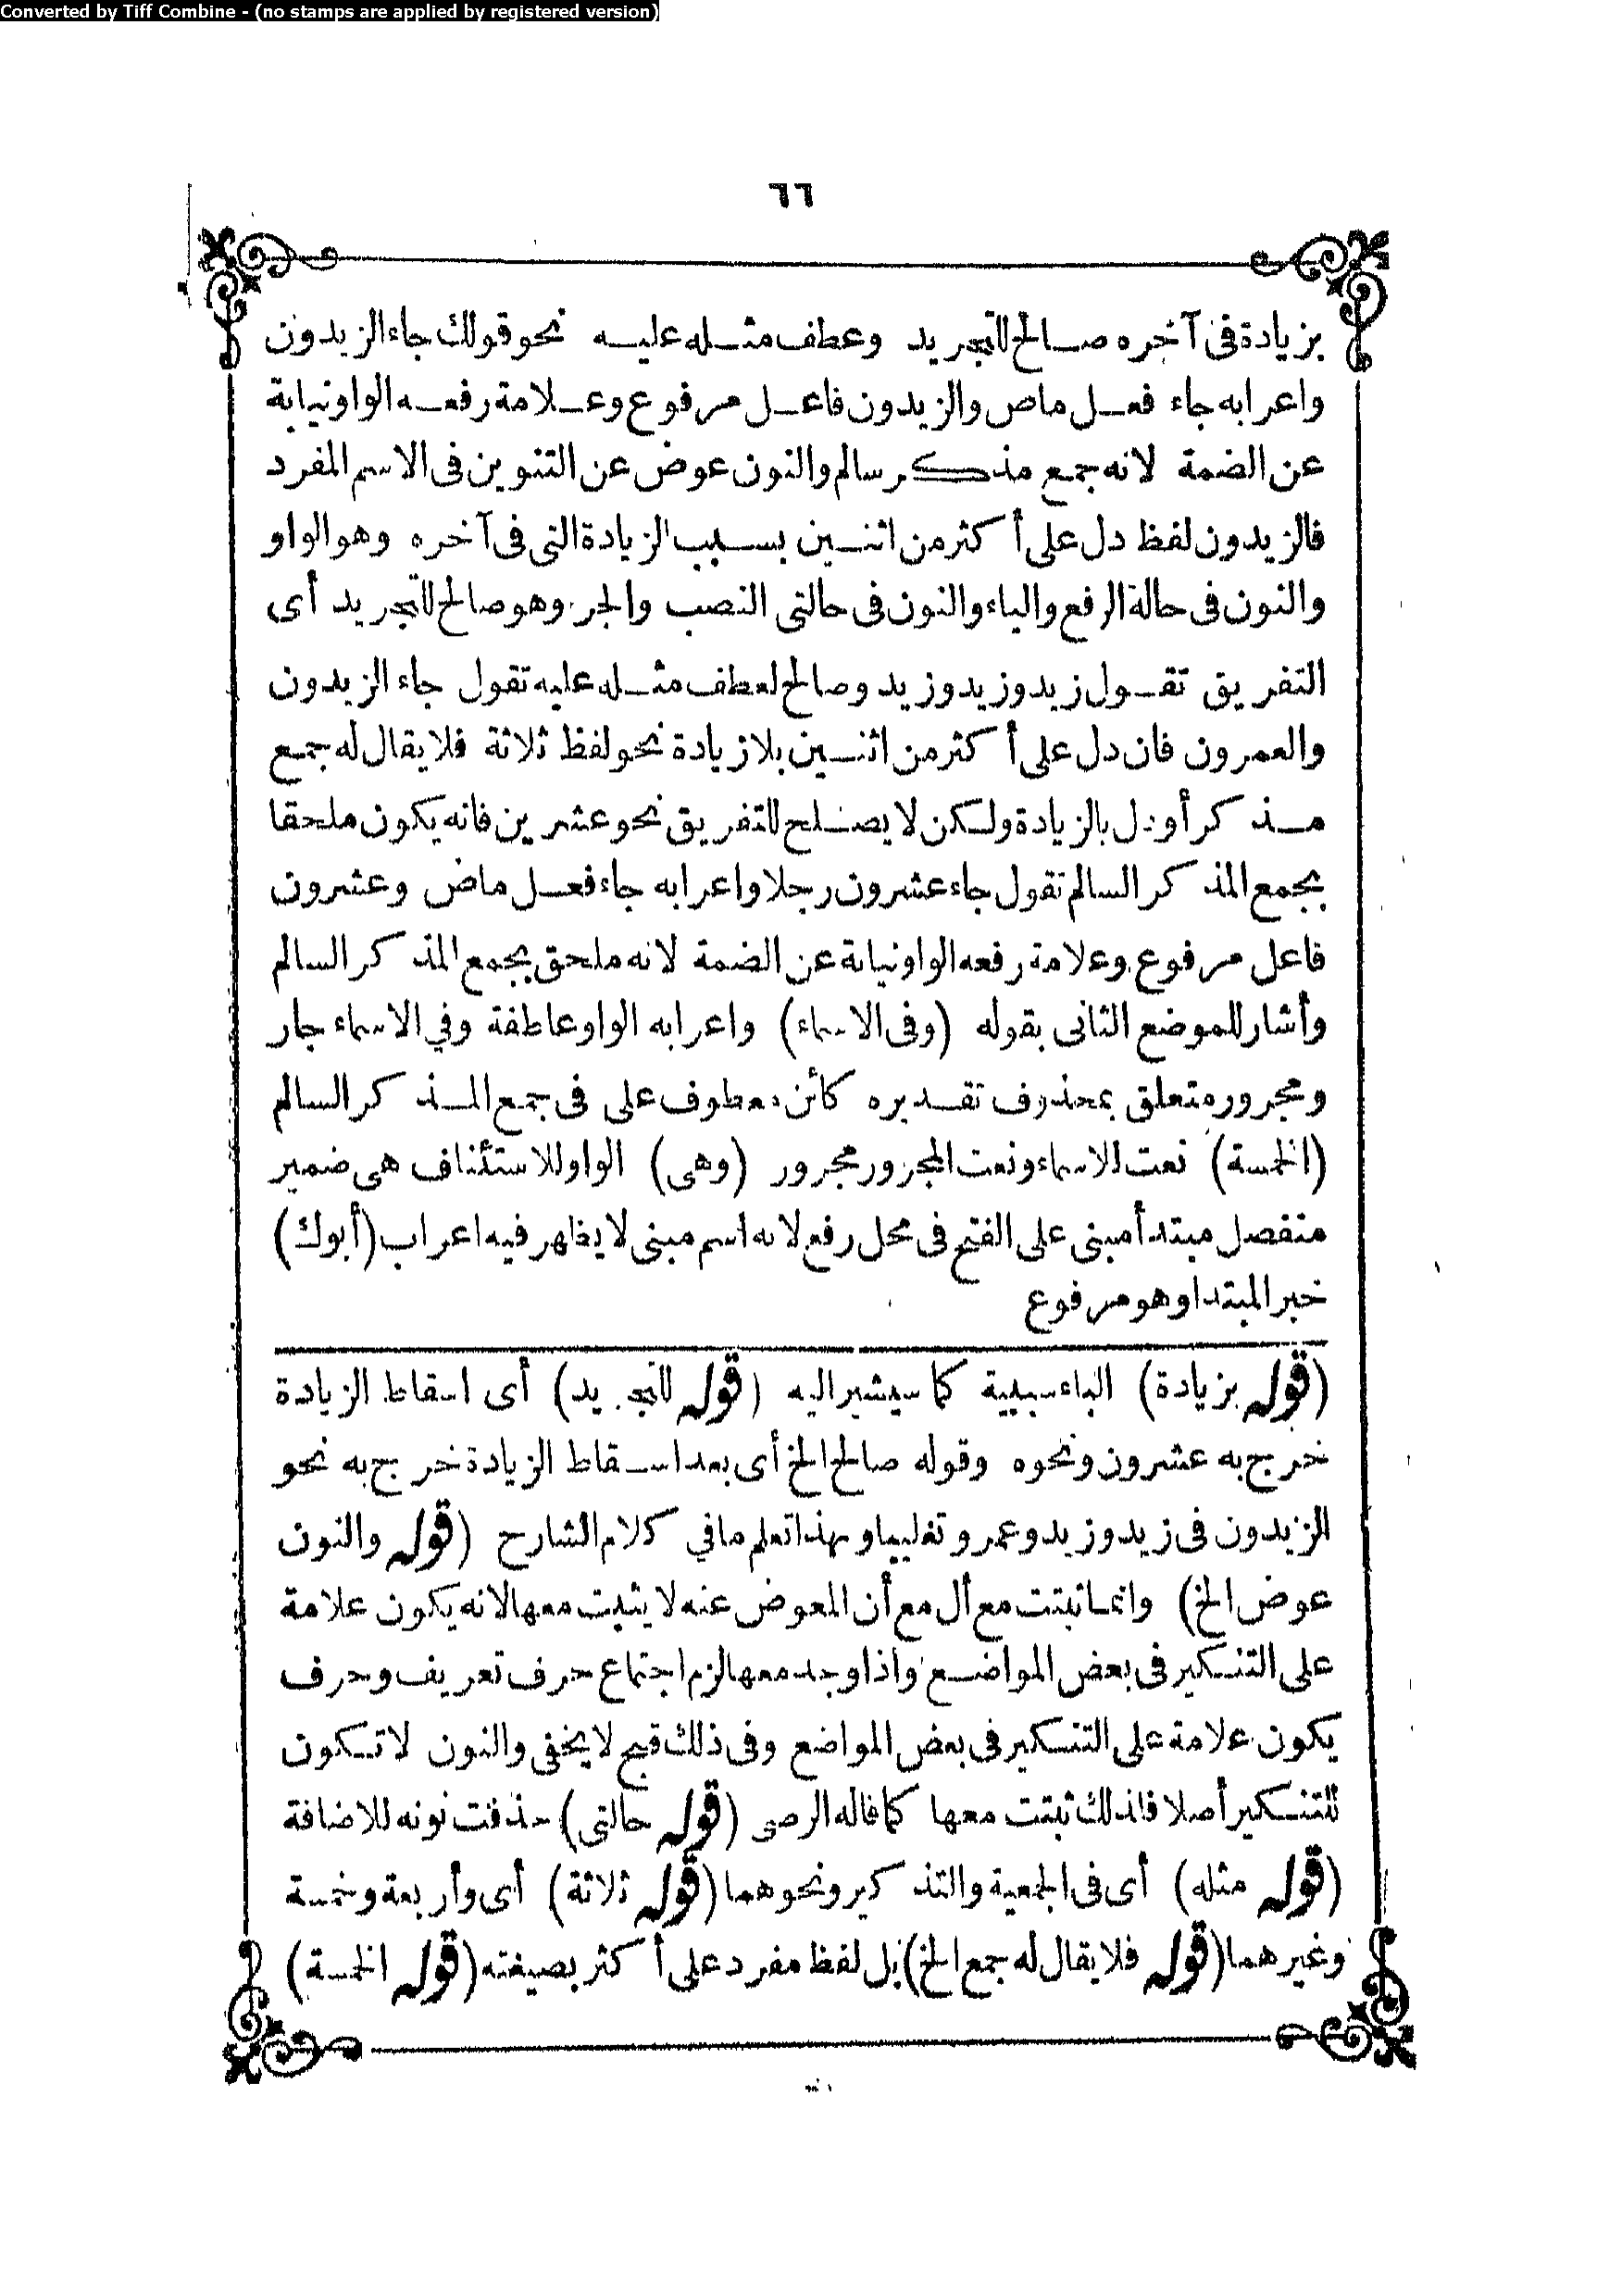 Converted by Tiff Combine - (no stamps are applied by registered version)
٦٦
بزيادة فى آخره صالح للتجريد وعطف مثله عليه نحو قولك جاء الزيدون
واعرابه جاء فعل ماض والزيدون فاعل مرفوع وعلامة رفعه الواو نيابة
عن الضمة لانه جمع مذكر سالم والنون عوض عن التنوين فى الاسم المفرد
فالزيدون لفظ دل على أكثر من اثنين بسبب الزيادة التى فى آخره وهو الواو
والنون فى حالة الرفع والياء والنون فى حالتى النصب والجر وهو صالح للتجريد أى
التفريق تقول زيد وزيد وزيد وصالح لعطف مثله عليه تقول جاء الزيدون
والعمرون فان دل على أكثر من اثنين بلا زيادة نحو لفظ ثلاثة فلا يقال له جمع
مذكر أو دل بالزيادة ولكن لا يصلح للتفريق نحو عشرين فانه يكون ملحقا
بجمع المذكر السالم تقول جاء عشرون رجلا واعرابه جاء فعل ماض وعشرون
فاعل مرفوع وعلامة رفعه الواو نيابة عن الضمة لانه ملحق بجمع المذكر السالم
وأشار للموضع الثانى بقوله (وفى الاسماء) واعرابه الواو عاطفة وفي الاسماء جار
ومجرور متعلق بمحذوف تقديره كائن معطوف على فى جمع المذكر السالم
(الخمسة) نعت للاسماء ونعت المجرور مجرور (وهى) الواو للاستئناف هى ضمير
منفصل مبتدأ مبنى على الفتح فى محل رفع لانه اسم مبنى لا يظهر فيه اعراب (أبوك)
خبر المبتدا وهو مرفوع
(قوله بزيادة) الباء سببية كما سيشير اليه (قوله للتجريد) أى اسقاط الزيادة
خرج به عشرون ونحوه وقوله صالح الخ أى بعد اسقاط الزيادة خرج به نحو
الزيدون فى زيد وزيد وعمرو تغليبا وبهذا تعلم مافي كلام الشارح (قوله والنون
عوض الخ) وانما ثبتت مع أل مع أن المعوض عنه لا يثبت معها لانه يكون علامة
على التنكير فى بعض المواضع واذا وجد معها لزم اجتماع حرف تعريف وحرف
يكون علامة على التنكير فى بعض المواضع وفى ذلك قبح لا يخفى والنون لا تكون
للتنكير أصلا فلذلك ثبتت معها كما قاله الرضى (قوله حالتى) حذفت نونه للاضافة
(قوله مثله) أى فى الجمعية والتذكير ونحوهما (قوله ثلاثة) أى وأربعة وخمسة
وغيرهما (قوله فلا يقال له جمع الخ) بل لفظ مفرد على أكثر بصيغته (قوله الخمسة)